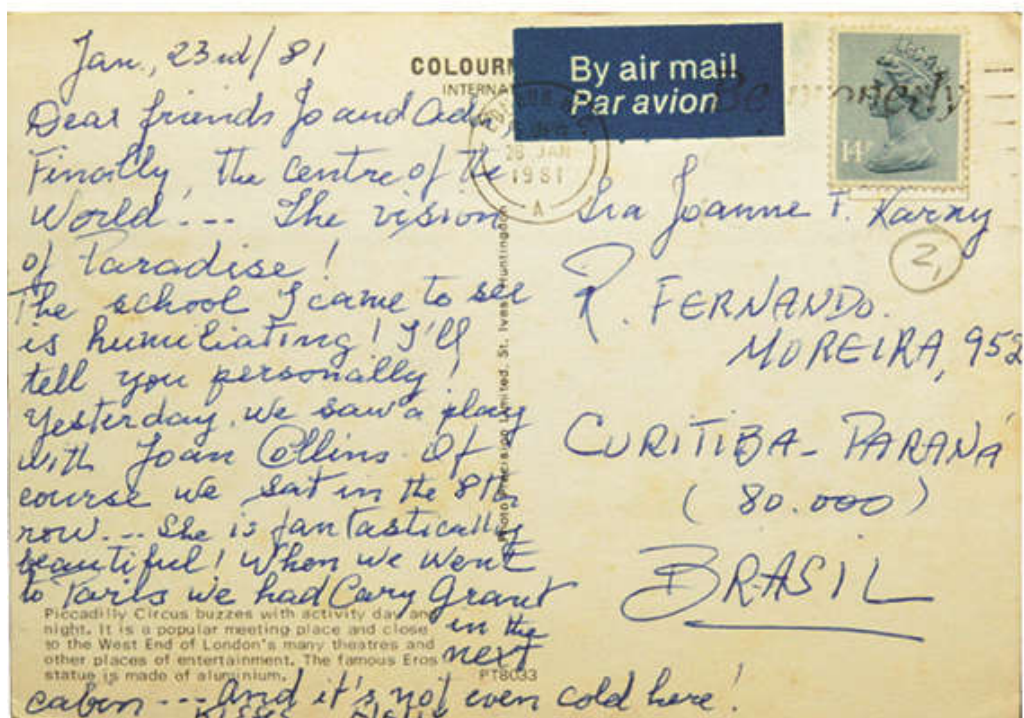 Jan, 23rd/81
Dear friends Jo and
Finally, the centre of the
World!... The vision
of Paradise!
The school I came to see
is humiliating! I'll
tell you personally!
Yesterday, we saw a play
with Joan Collins. Of
course we sat in the 8th
row... She is fantastically
beautiful! When we went
to Paris we had Cary Grant
in the
next
cabin --- And it's not even cold here!
Piccadilly Circus buzzes with activity day and
night. It is a popular meeting place and close
to the West End of London's many theatres and
other places of entertainment. The famous Eros
statue is made of aluminium.
PT8033
COLOUR
INTERNA
By air mail
Par avion
JAN
1981
A
14P
Limited, St. Ives, Huntingdon
Sra Joanne F. Karny
2,
R. FERNANDO.
MOREIRA, 952
CURITIBA - PARANÁ
(80.000)
BRASIL